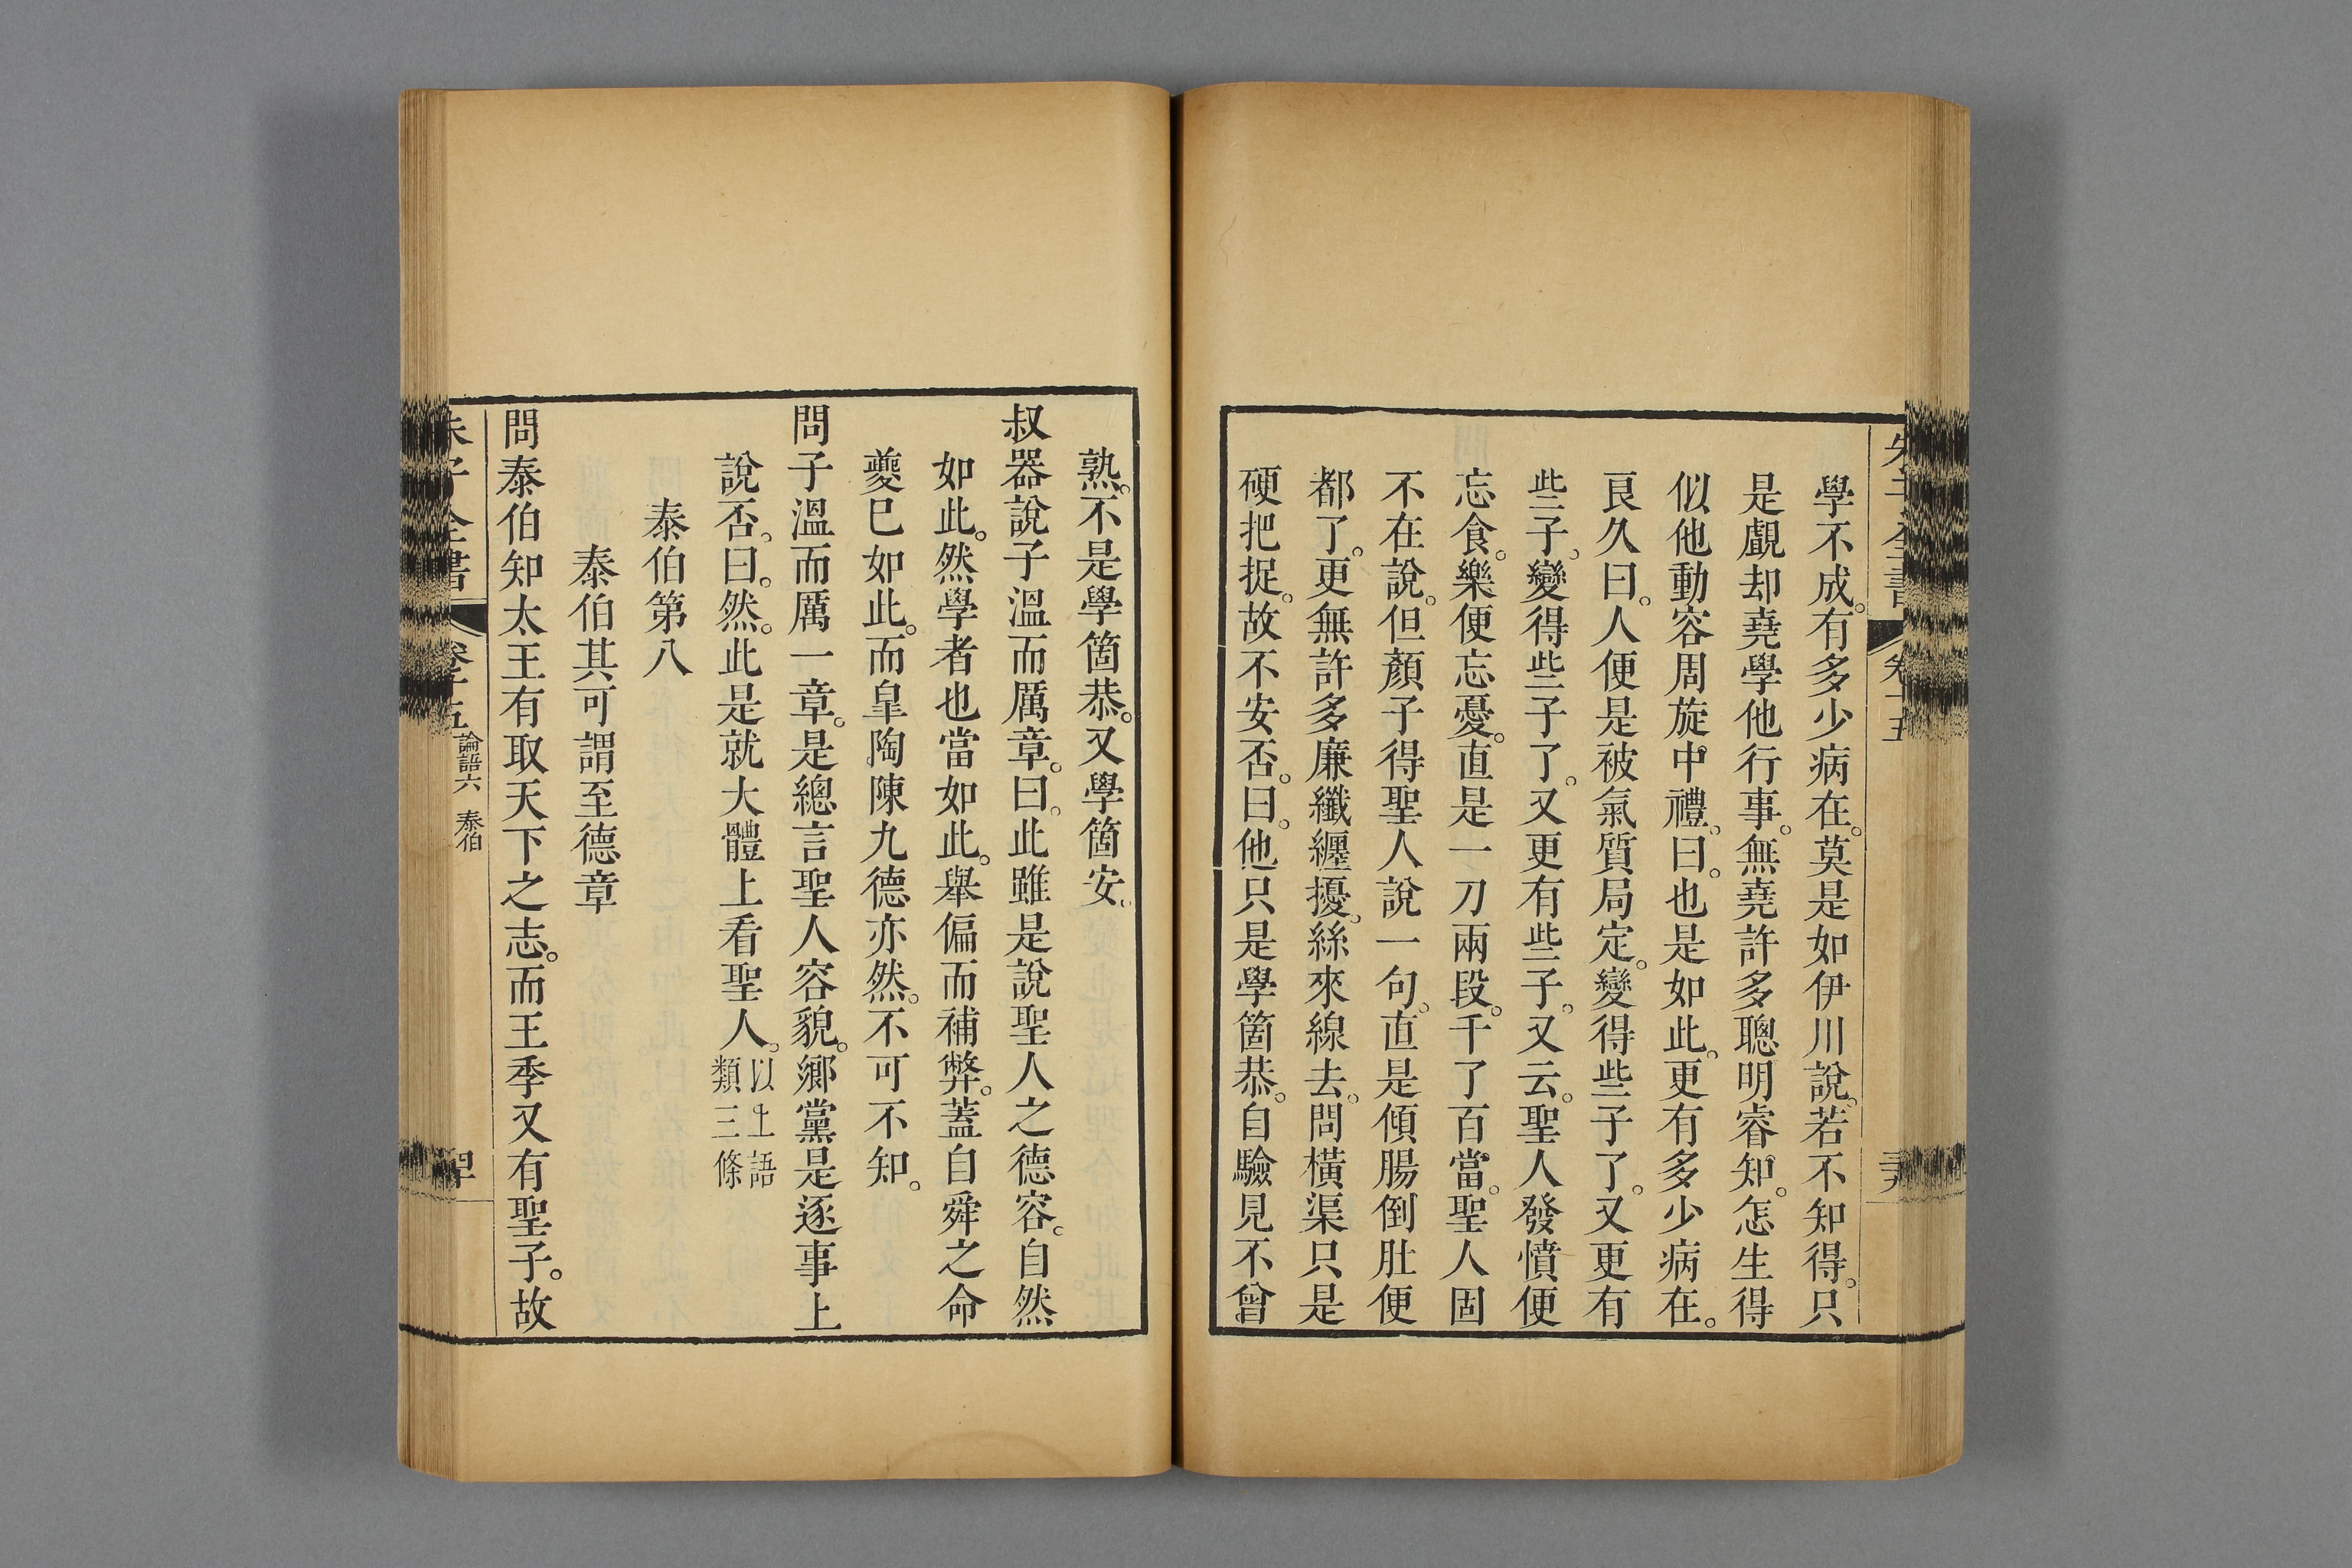 學不成。有多少病在。莫是如伊川說。若不知得。只
是覰却堯學他行事。無堯許多聰明睿知。怎生得
似他動容周旋中禮。曰。也是如此。更有多少病在。
良久曰。人便是被氣質局定。變得些子了。又更有
些子。變得些子了。又更有些子。又云。聖人發憤便
忘食。樂便忘憂。直是一刀兩段。千了百當。聖人固
不在說。但顏子得聖人說一句。直是傾腸倒肚便
都了。更無許多廉纖纏擾。絲來線去。問橫渠只是
硬把捉。故不安否。曰。他只是學箇恭。自驗見不曾
熟。不是學箇恭。又學箇安。
叔器說子溫而厲章。曰。此雖是說聖人之德容。自然
如此。然學者也當如此。舉偏而補弊。蓋自舜之命
夔已如此。而皐陶陳九德亦然。不可不知。
問子溫而厲一章。是總言聖人容貌。鄉黨是逐事上
說否。曰。然。此是就大體上看聖人。以上語類三條
泰伯第八
泰伯其可謂至德章
問泰伯知太王有取天下之志。而王季又有聖子。故
朱子全書 卷十五 論語六 泰伯